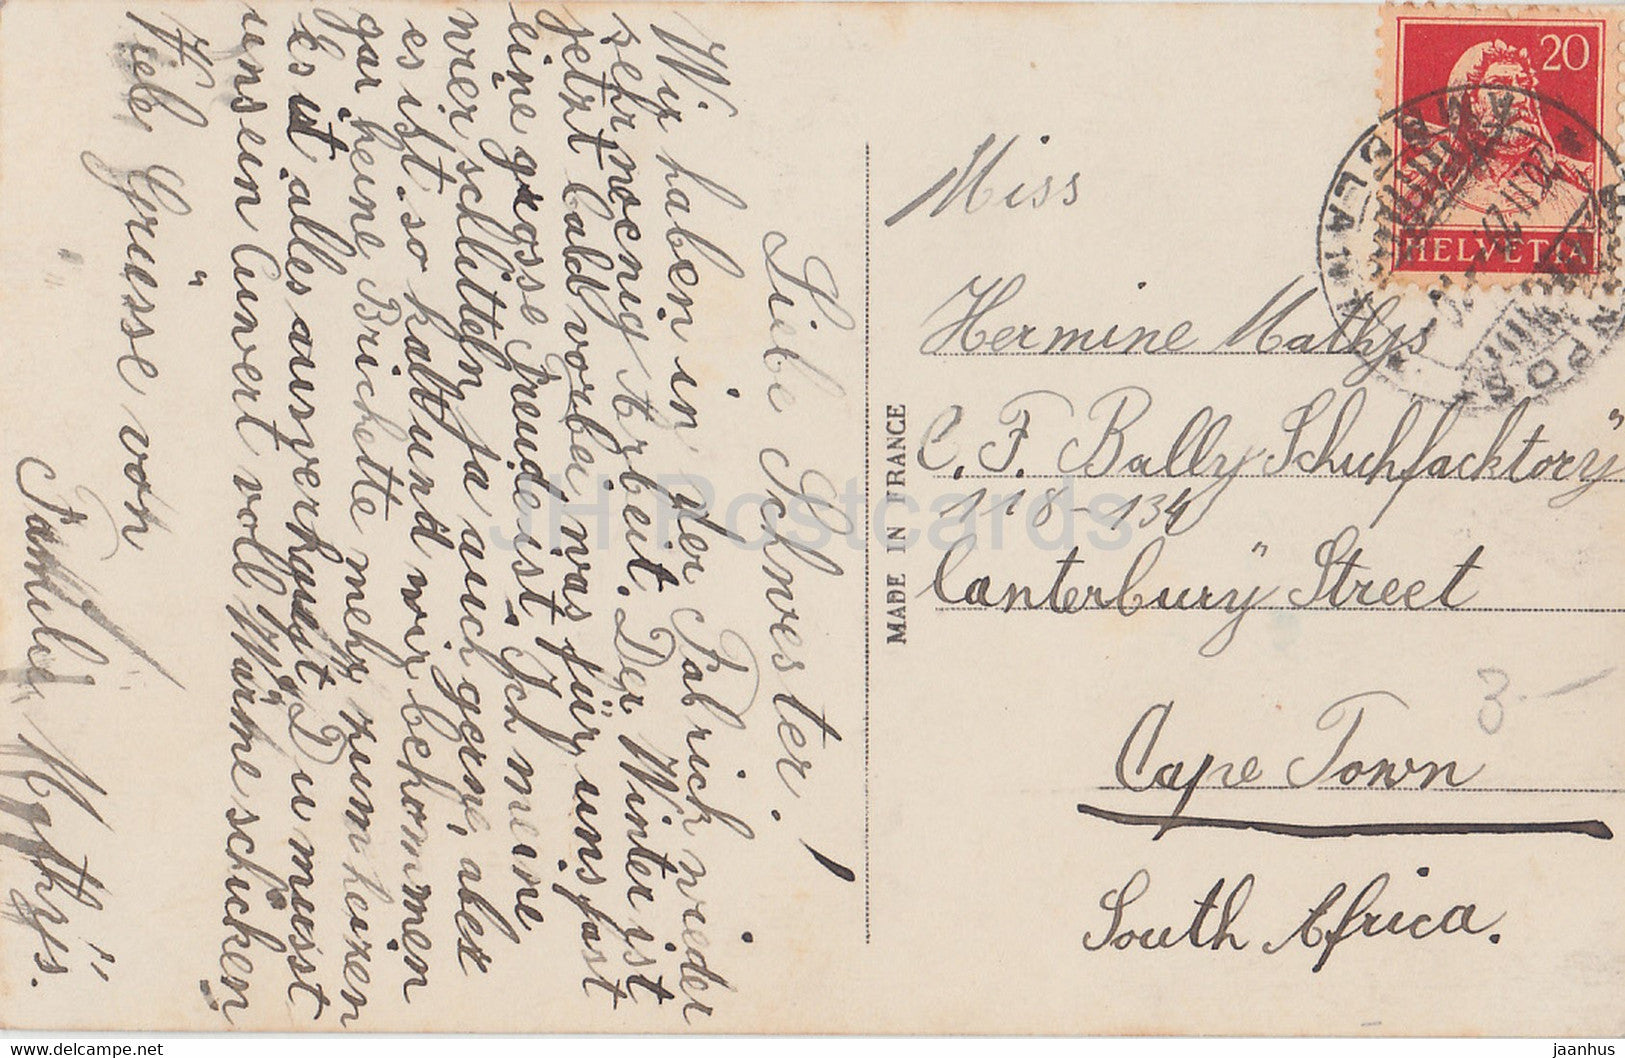 Liebe Schwester!
Wir haben in der Fabrick wieder
sehr wenig Arbeit. Der Winter ist
jetzt bald vorbei, was für uns fast
eine grosse Freude ist. Ich meine
wier schlitteln ja auch gerne, aber
es ist so kalt und wir bekommen
gar keine Brickette mehr zum heizen
Es ist alles ausverkauft. Du musst
uns ein Cuvert voll Wärme schicken
Viele Grüsse von
Familie Mathys.
MADE IN FRANCE
20
HELVETIA
Miss
Hermine Mathys
C. F. Bally Schuhfacktory
118-134
Canterbury Street
Cape Town
South Africa.
3.-
JH Postcards
jaanhus ©
delcampe.net